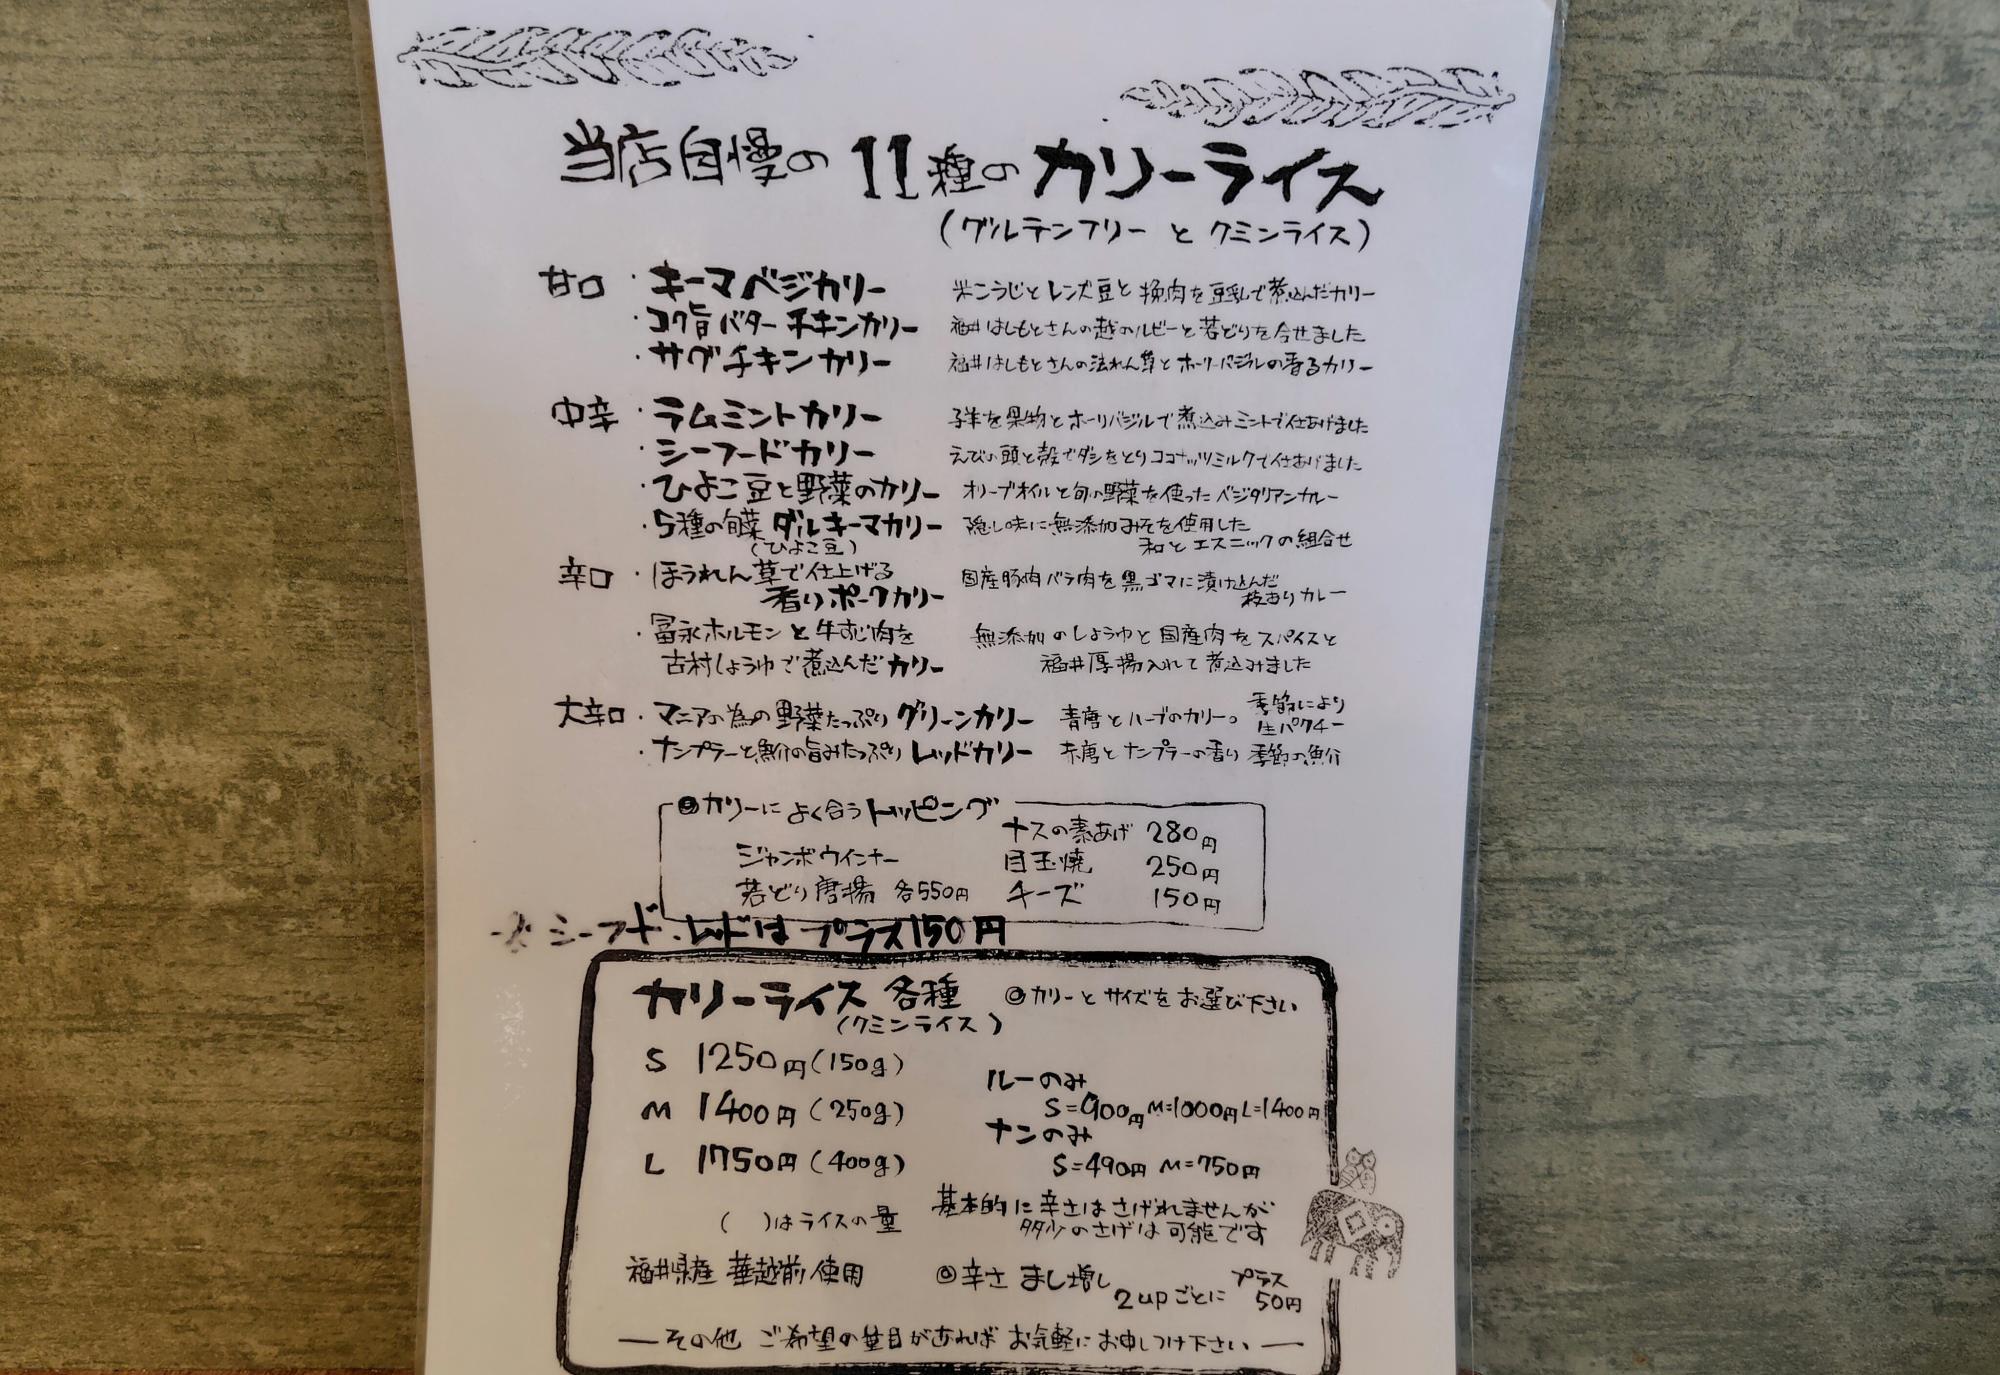 当店自慢の 11種の カリーライス
(グルテンフリー と クミンライス)
甘口 ・キーマベジカリー 米こうじとレンズ豆と挽肉を豆乳で煮込んだカリー
・コク旨バターチキンカリー 福井はしもとさんの越のルビーと若どりを合せました
・サグチキンカリー 福井はしもとさんの法れん草とホーリーバジルの香るカリー
中辛 ・ラムミントカリー 子羊を果物とホーリバジルで煮込みミントで仕あげました
・シーフードカリー えびの頭と殻でダシをとりココナッツミルクで仕あげました
・ひよこ豆と野菜のカリー オリーブオイルと旬の野菜を使ったベジタリアンカレー
・5種の旬菜 ダルキーマカリー 隠し味に無添加みそを使用した
(ひよこ豆) 和とエスニックの組合せ
辛口 ・ほうれん草で仕上げる 国産豚肉バラ肉を黒ゴマに漬け込んだ
香りポークカリー 技ありカレー
・冨永ホルモンと牛すじ肉を 無添加のしょうゆと国産肉をスパイスと
古村しょうゆで煮込んだカリー 福井厚揚入れて煮込みました
大辛口 ・マニアの為の野菜たっぷり グリーンカリー 青唐とハーブのカリー。 季節により
生パクチー
・ナンプラーと魚介の旨みたっぷり レッドカリー 赤唐とナンプラーの香り 季節の魚介
◎カリーに よく合う トッピング
ナスの素あげ 280円
ジャンボウインナー 目玉焼 250円
若どり唐揚 各550円 チーズ 150円
シーフード、レッドは プラス150円
カリーライス 各種 ◎カリーとサイズをお選び下さい
(クミンライス)
S 1250円(150g)
ルーのみ
M 1400円(250g) S=900円 M=1000円 L=1400円
ナンのみ
L 1750円(400g) S=490円 M=750円
( )はライスの量 基本的に辛さはさげれませんが
多少のさげは可能です
福井県産 華越前使用 ◎辛さ まし増し 2upごとに プラス
50円
―その他 ご希望の量目があれば お気軽に お申しつけ下さい―